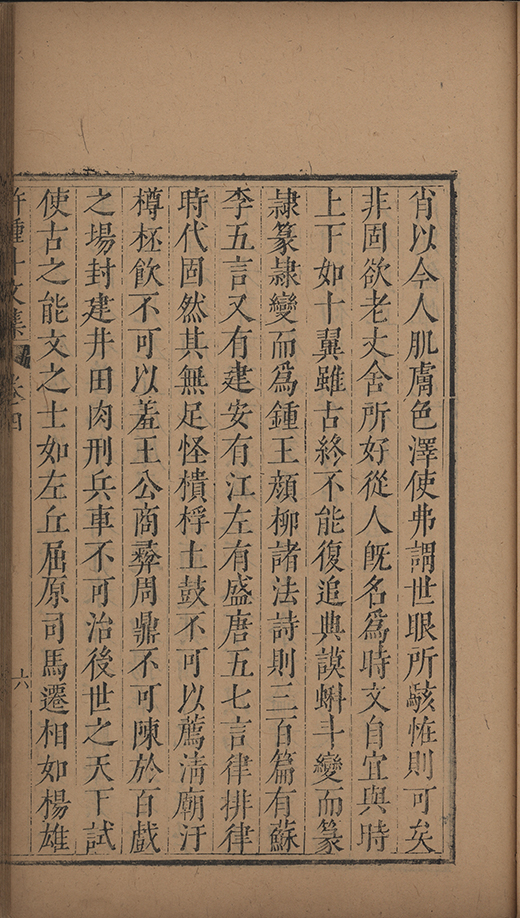 肖以今人肌膚色澤使弗謂世眼所駭恠則可矣
非固欲老丈舍所好從人旣名爲時文自宜與時
上下如十翼雖古終不能復追典謨蝌斗變而篆
隷篆隷變而爲鍾王顔柳諸法詩則三百篇有蘇
李五言又有建安有江左有盛唐五七言律排律
時代固然其無足怪樻桴土鼓不可以薦淸廟汙
樽杯飮不可以羞王公商彝周鼎不可陳於百戲
之場封建井田肉刑兵車不可治後世之天下試
使古之能文之士如左丘屈原司馬遷相如楊雄
文集 卷四
六